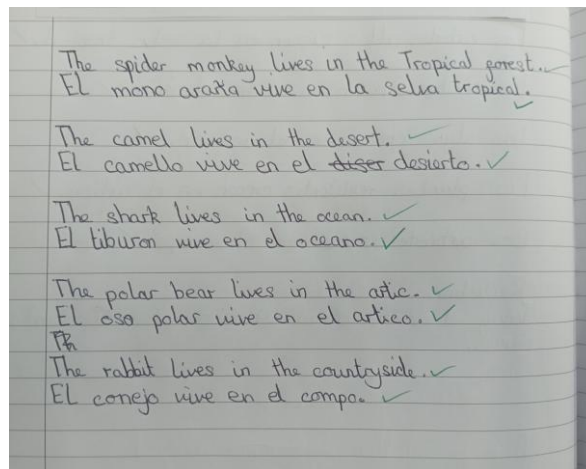 The spider monkey lives in the Tropical gorest.
El mono araña vive en la selva tropical.
The camel lives in the desert.
El camello vive en el diser desierto.
The shark lives in the ocean.
El tiburon vive en el oceano.
The polar bear lives in the artic.
El oso polar vive en el artico.
Th
The rabbit lives in the countryside.
El conejo vive en el compo.